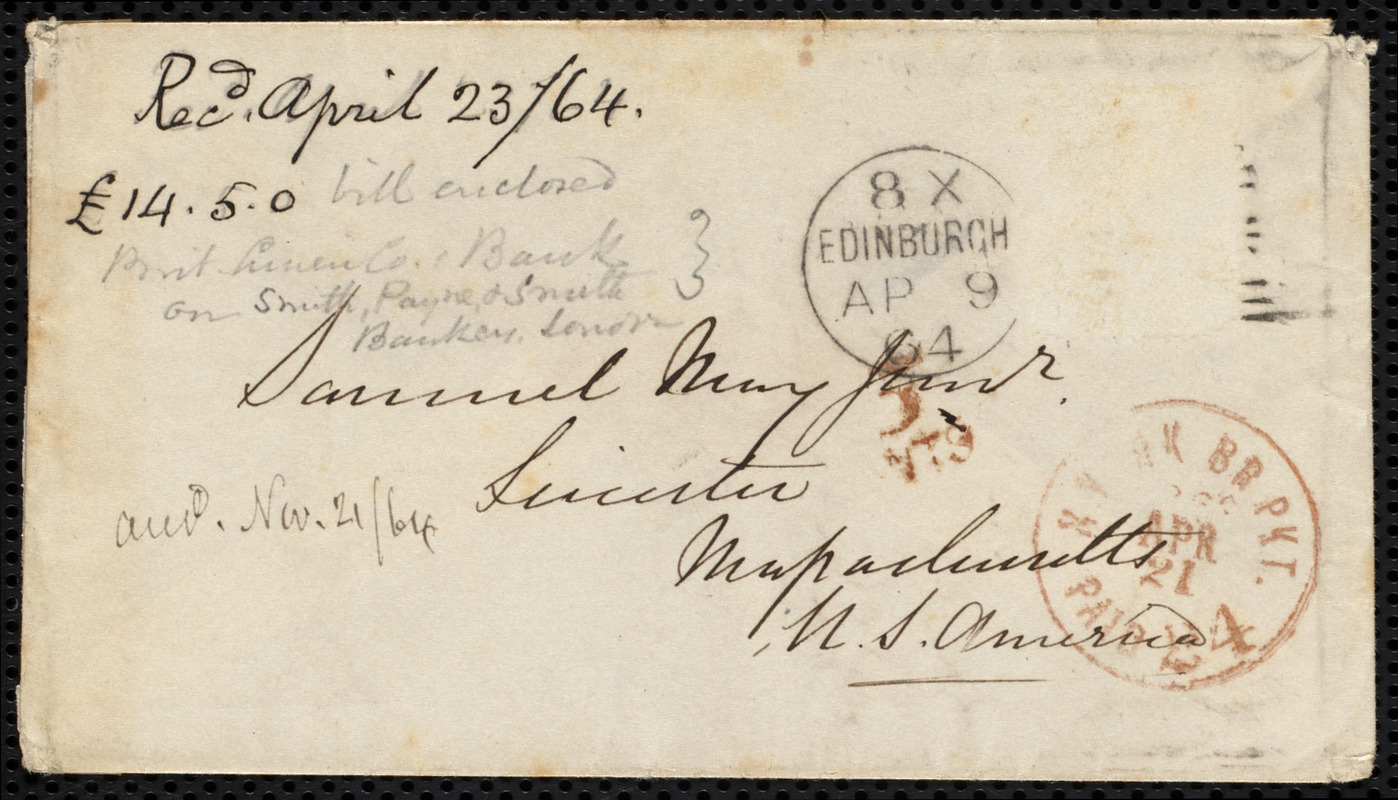 Recd. April 23/64.
£14.5.0 bill enclosed
Brit. Linen Co. Bank
on Smith, Payne, & Smith
Bankers, London
8 X
EDINBURGH
AP 9
64
Samuel May Junr.
Leicester
Massachusetts
U.S. America
ansd. Nov. 21/64
N. YORK BR PKT.
APR
21
PAID